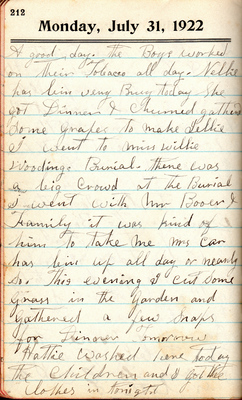 212
Monday, July 31, 1922
A good day. the Boys worked
on their Tobacco all day. Nellie
has bein very Busy today she
got Dinner & Churned gathered
Some grapes to make Jellie
I went to miss willie
Woodings Burial. there was
a big Crowd at the Burial
I went with Mr Booer &
Family it was kind of
him to take me mrs Car
has bein up all day or nearly
so. This evening I cut Some
grass in the Garden and
Gathered a few snaps
for Dinner Tomorrow
Hattie washed here today
the Children and I got the
Clothes in tonight